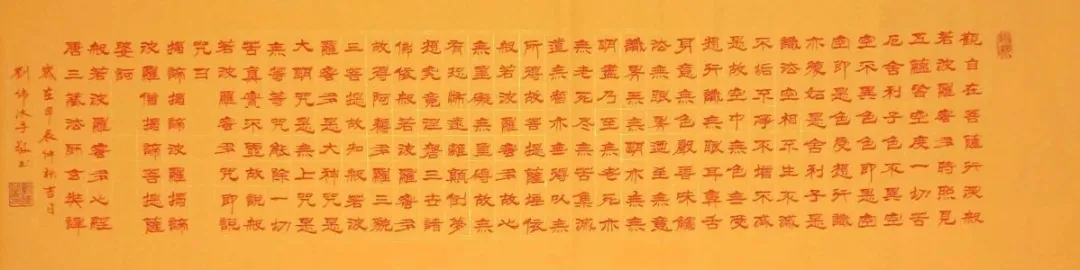 觀自在菩薩行深般
若波羅蜜多時照見
五蘊皆空度一切苦
厄舍利子色不異空
空不異色色即是空
空即是色受想行識
亦復如是舍利子是
諸法空相不生不滅
不垢不淨不增不減
是故空中無色無受
想行識無眼耳鼻舌
身意無色聲香味觸
法無眼界乃至無意
識界無無明亦無無
明盡乃至無老死亦
無老死盡無苦集滅
道無智亦無得以無
所得故菩提薩埵依
般若波羅蜜多故心
無罣礙無罣礙故無
有恐怖遠離顛倒夢
想究竟涅槃三世諸
佛依般若波羅蜜多
故得阿耨多羅三藐
三菩提故知般若波
羅蜜多是大神咒是
大明咒是無上咒是
無等等咒能除一切
苦真實不虛故說般
若波羅蜜多咒即說
咒曰
揭諦揭諦波羅揭諦
波羅僧揭諦菩提薩
婆訶
般若波羅蜜多心經
唐三藏法師玄奘譯
歲在甲辰仲秋吉日
劉偉